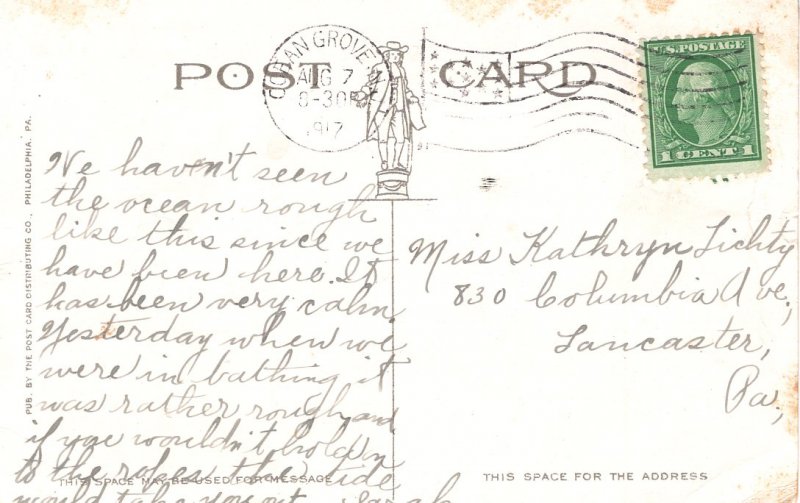 POST CARD
OCEAN GROVE N.J.
AUG 7
1917
U.S. POSTAGE
1 CENT 1
PUB. BY THE POST CARD DISTRIBUTING CO., PHILADELPHIA, PA.
We haven't seen
the ocean rough
like this since we
have been here. It
has been very calm.
Yesterday when we
were in bathing it
was rather rough and
if you wouldn't hold on
to the ropes the tide
would take you out. Sarah
THIS SPACE MAY BE USED FOR MESSAGE
Miss Kathryn Lichty
830 Columbia Ave,
Lancaster,
Pa,
THIS SPACE FOR THE ADDRESS